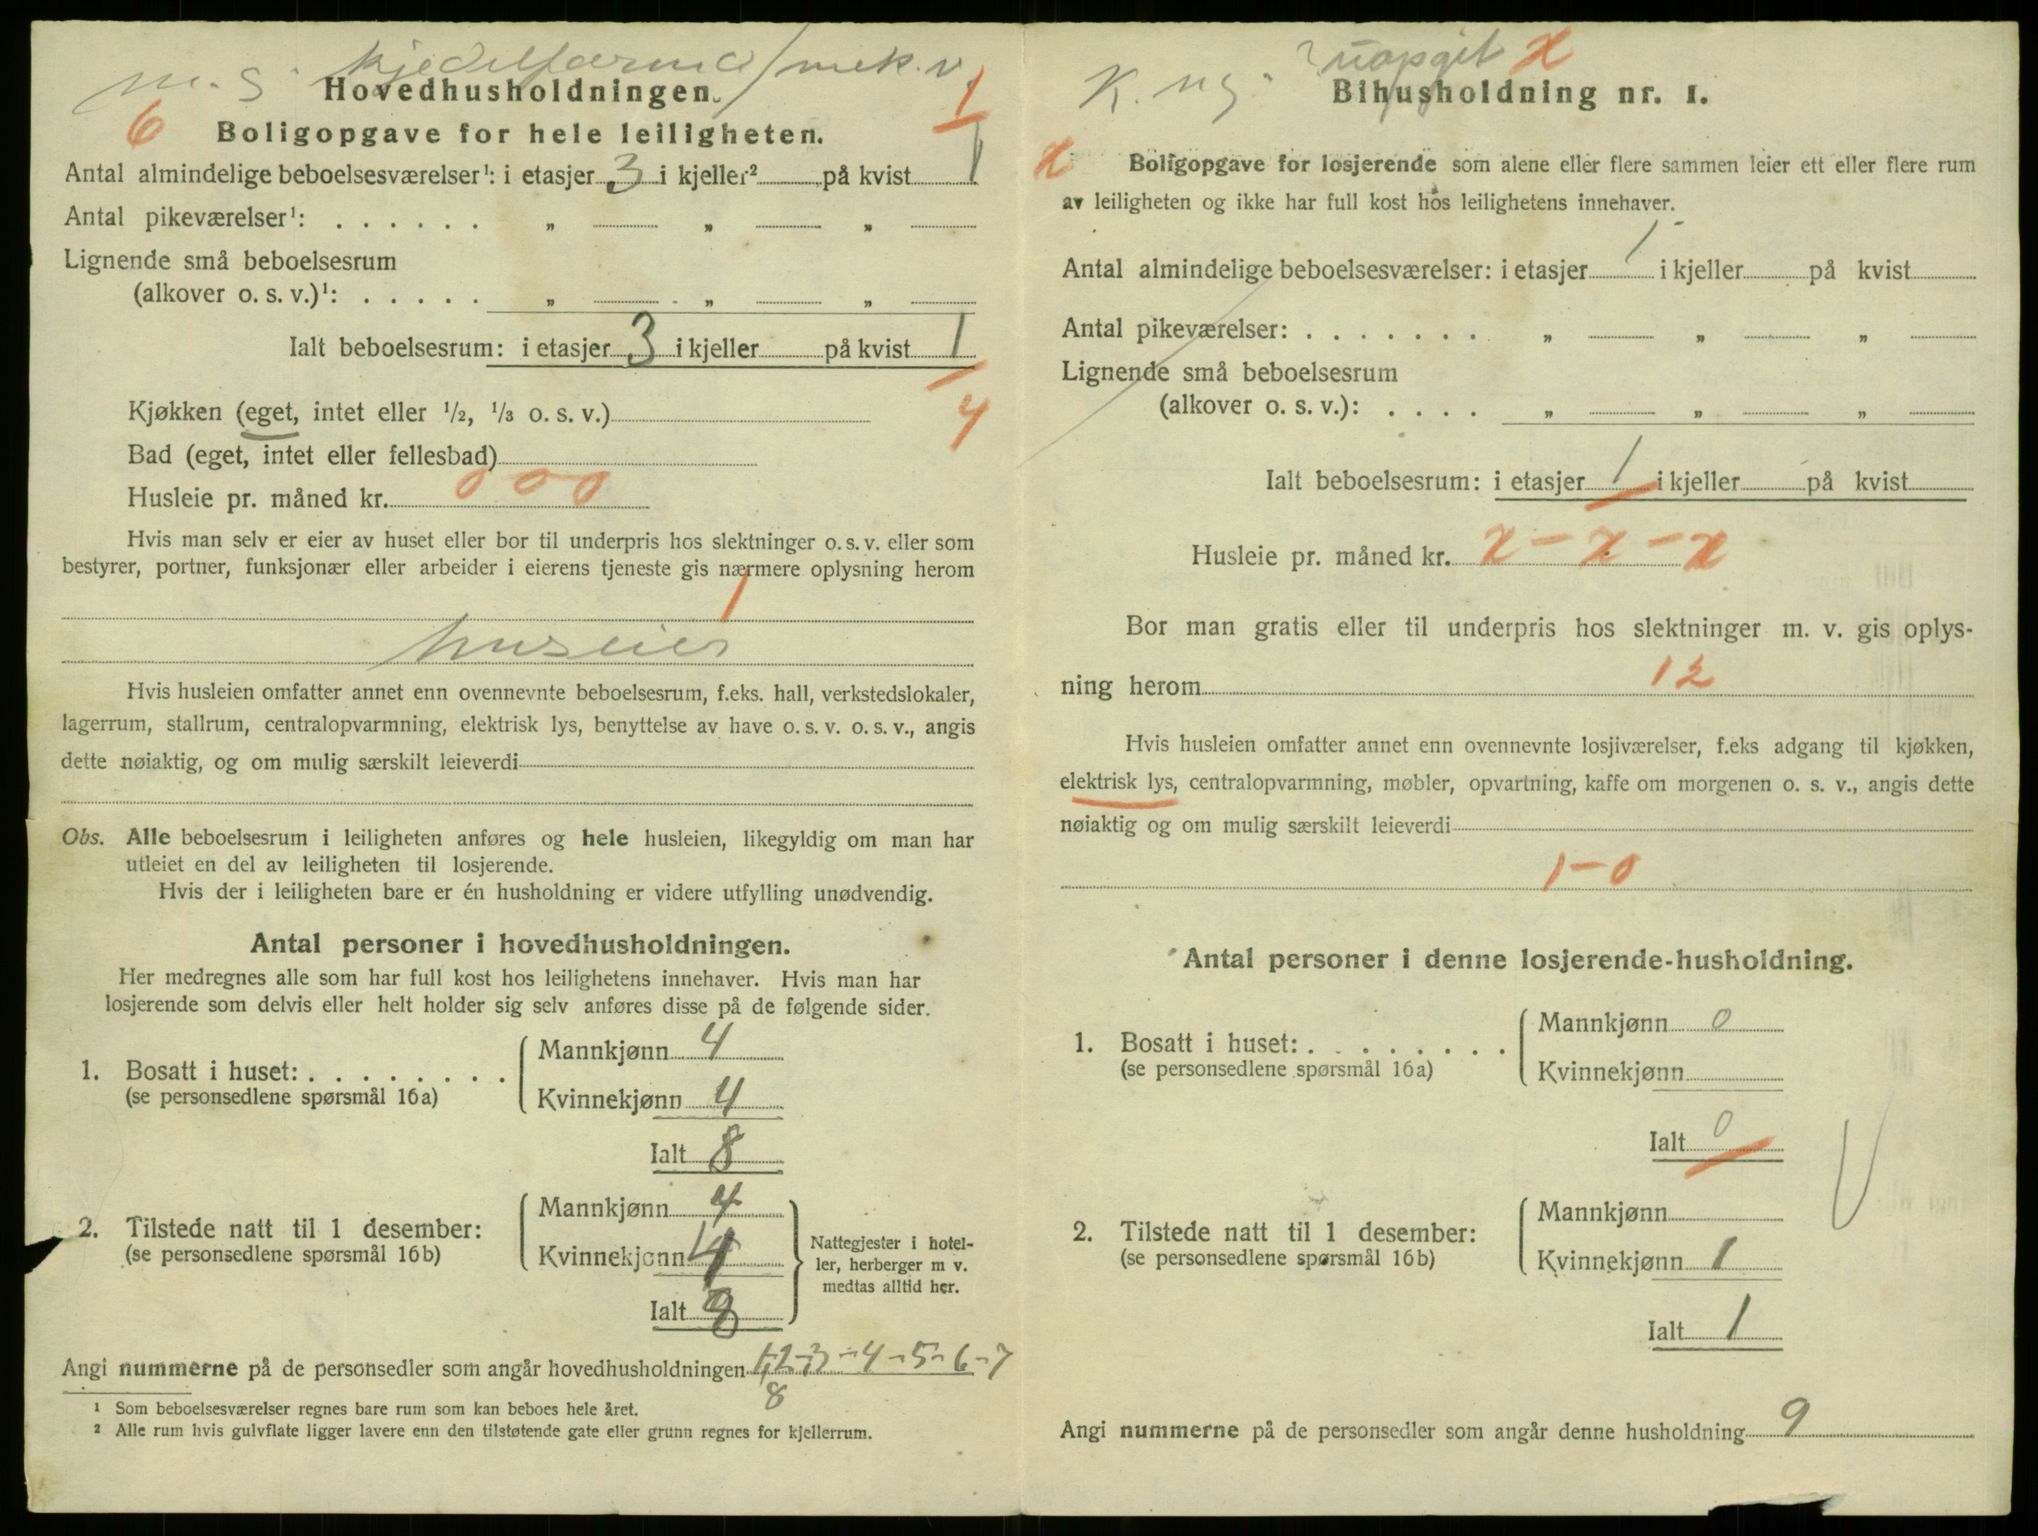 m. g. kjedelformand / mek. v.
Hovedhusholdningen.
6 1
Boligopgave for hele leiligheten.
Antal almindelige beboelsesværelser¹: i etasjer 3 i kjeller² på kvist 1
Antal pikeværelser¹: . . . . . . „ „ „
Lignende små beboelsesrum
(alkover o. s. v.)¹: . . . . . „ „ „
Ialt beboelsesrum: i etasjer 3 i kjeller på kvist 1
4
Kjøkken (eget, intet eller ½, ⅓ o. s. v.)
Bad (eget, intet eller fellesbad)
000
Husleie pr. måned kr.
Hvis man selv er eier av huset eller bor til underpris hos slektninger o. s. v. eller som
bestyrer, portner, funksjonær eller arbeider i eierens tjeneste gis nærmere oplysning herom
1
huseier
Hvis husleien omfatter annet enn ovennevnte beboelsesrum, f.eks. hall, verkstedslokaler,
lagerrum, stallrum, centralopvarmning, elektrisk lys, benyttelse av have o. s. v. o. s. v., angis
dette nøiaktig, og om mulig særskilt leieverdi
Obs. Alle beboelsesrum i leiligheten anføres og hele husleien, likegyldig om man har
utleiet en del av leiligheten til losjerende.
Hvis der i leiligheten bare er én husholdning er videre utfylling unødvendig.
Antal personer i hovedhusholdningen.
Her medregnes alle som har full kost hos leilighetens innehaver. Hvis man har
losjerende som delvis eller helt holder sig selv anføres disse på de følgende sider.
1. Bosatt i huset: . . . . . . . .
(se personsedlene spørsmål 16a)
Mannkjønn 4
Kvinnekjønn 4
Ialt 8
2. Tilstede natt til 1 desember:
(se personsedlene spørsmål 16b)
Mannkjønn 4
Kvinnekjønn 4
Ialt 8
Nattegjester i hotel-
ler, herberger m v.
medtas alltid her.
Angi nummerne på de personsedler som angår hovedhusholdningen 1-2-3-4-5-6-7
8
¹ Som beboelsesværelser regnes bare rum som kan beboes hele året.
² Alle rum hvis gulvflate ligger lavere enn den tilstøtende gate eller grunn regnes for kjellerrum.
K. ug. ? uopgit x
Bihusholdning nr. 1.
x Boligopgave for losjerende som alene eller flere sammen leier ett eller flere rum
av leiligheten og ikke har full kost hos leilighetens innehaver.
Antal almindelige beboelsesværelser: i etasjer 1 i kjeller på kvist
Antal pikeværelser: . . . . . . . „ „ „
Lignende små beboelsesrum
(alkover o. s. v.): . . . . „ „ „
Ialt beboelsesrum: i etasjer 1 i kjeller på kvist
Husleie pr. måned kr. x - x - x
Bor man gratis eller til underpris hos slektninger m. v. gis oplys-
ning herom 12
Hvis husleien omfatter annet enn ovennevnte losjiværelser, f.eks adgang til kjøkken,
elektrisk lys, centralopvarmning, møbler, opvartning, kaffe om morgenen o. s. v., angis dette
nøiaktig og om mulig særskilt leieverdi
1-0
Antal personer i denne losjerende-husholdning.
1. Bosatt i huset: . . . . . . . .
(se personsedlene spørsmål 16a)
Mannkjønn 0
Kvinnekjønn
Ialt 0
2. Tilstede natt til 1 desember:
(se personsedlene spørsmål 16b)
Mannkjønn
Kvinnekjønn 1
Ialt 1
Angi nummerne på de personsedler som angår denne husholdning 9